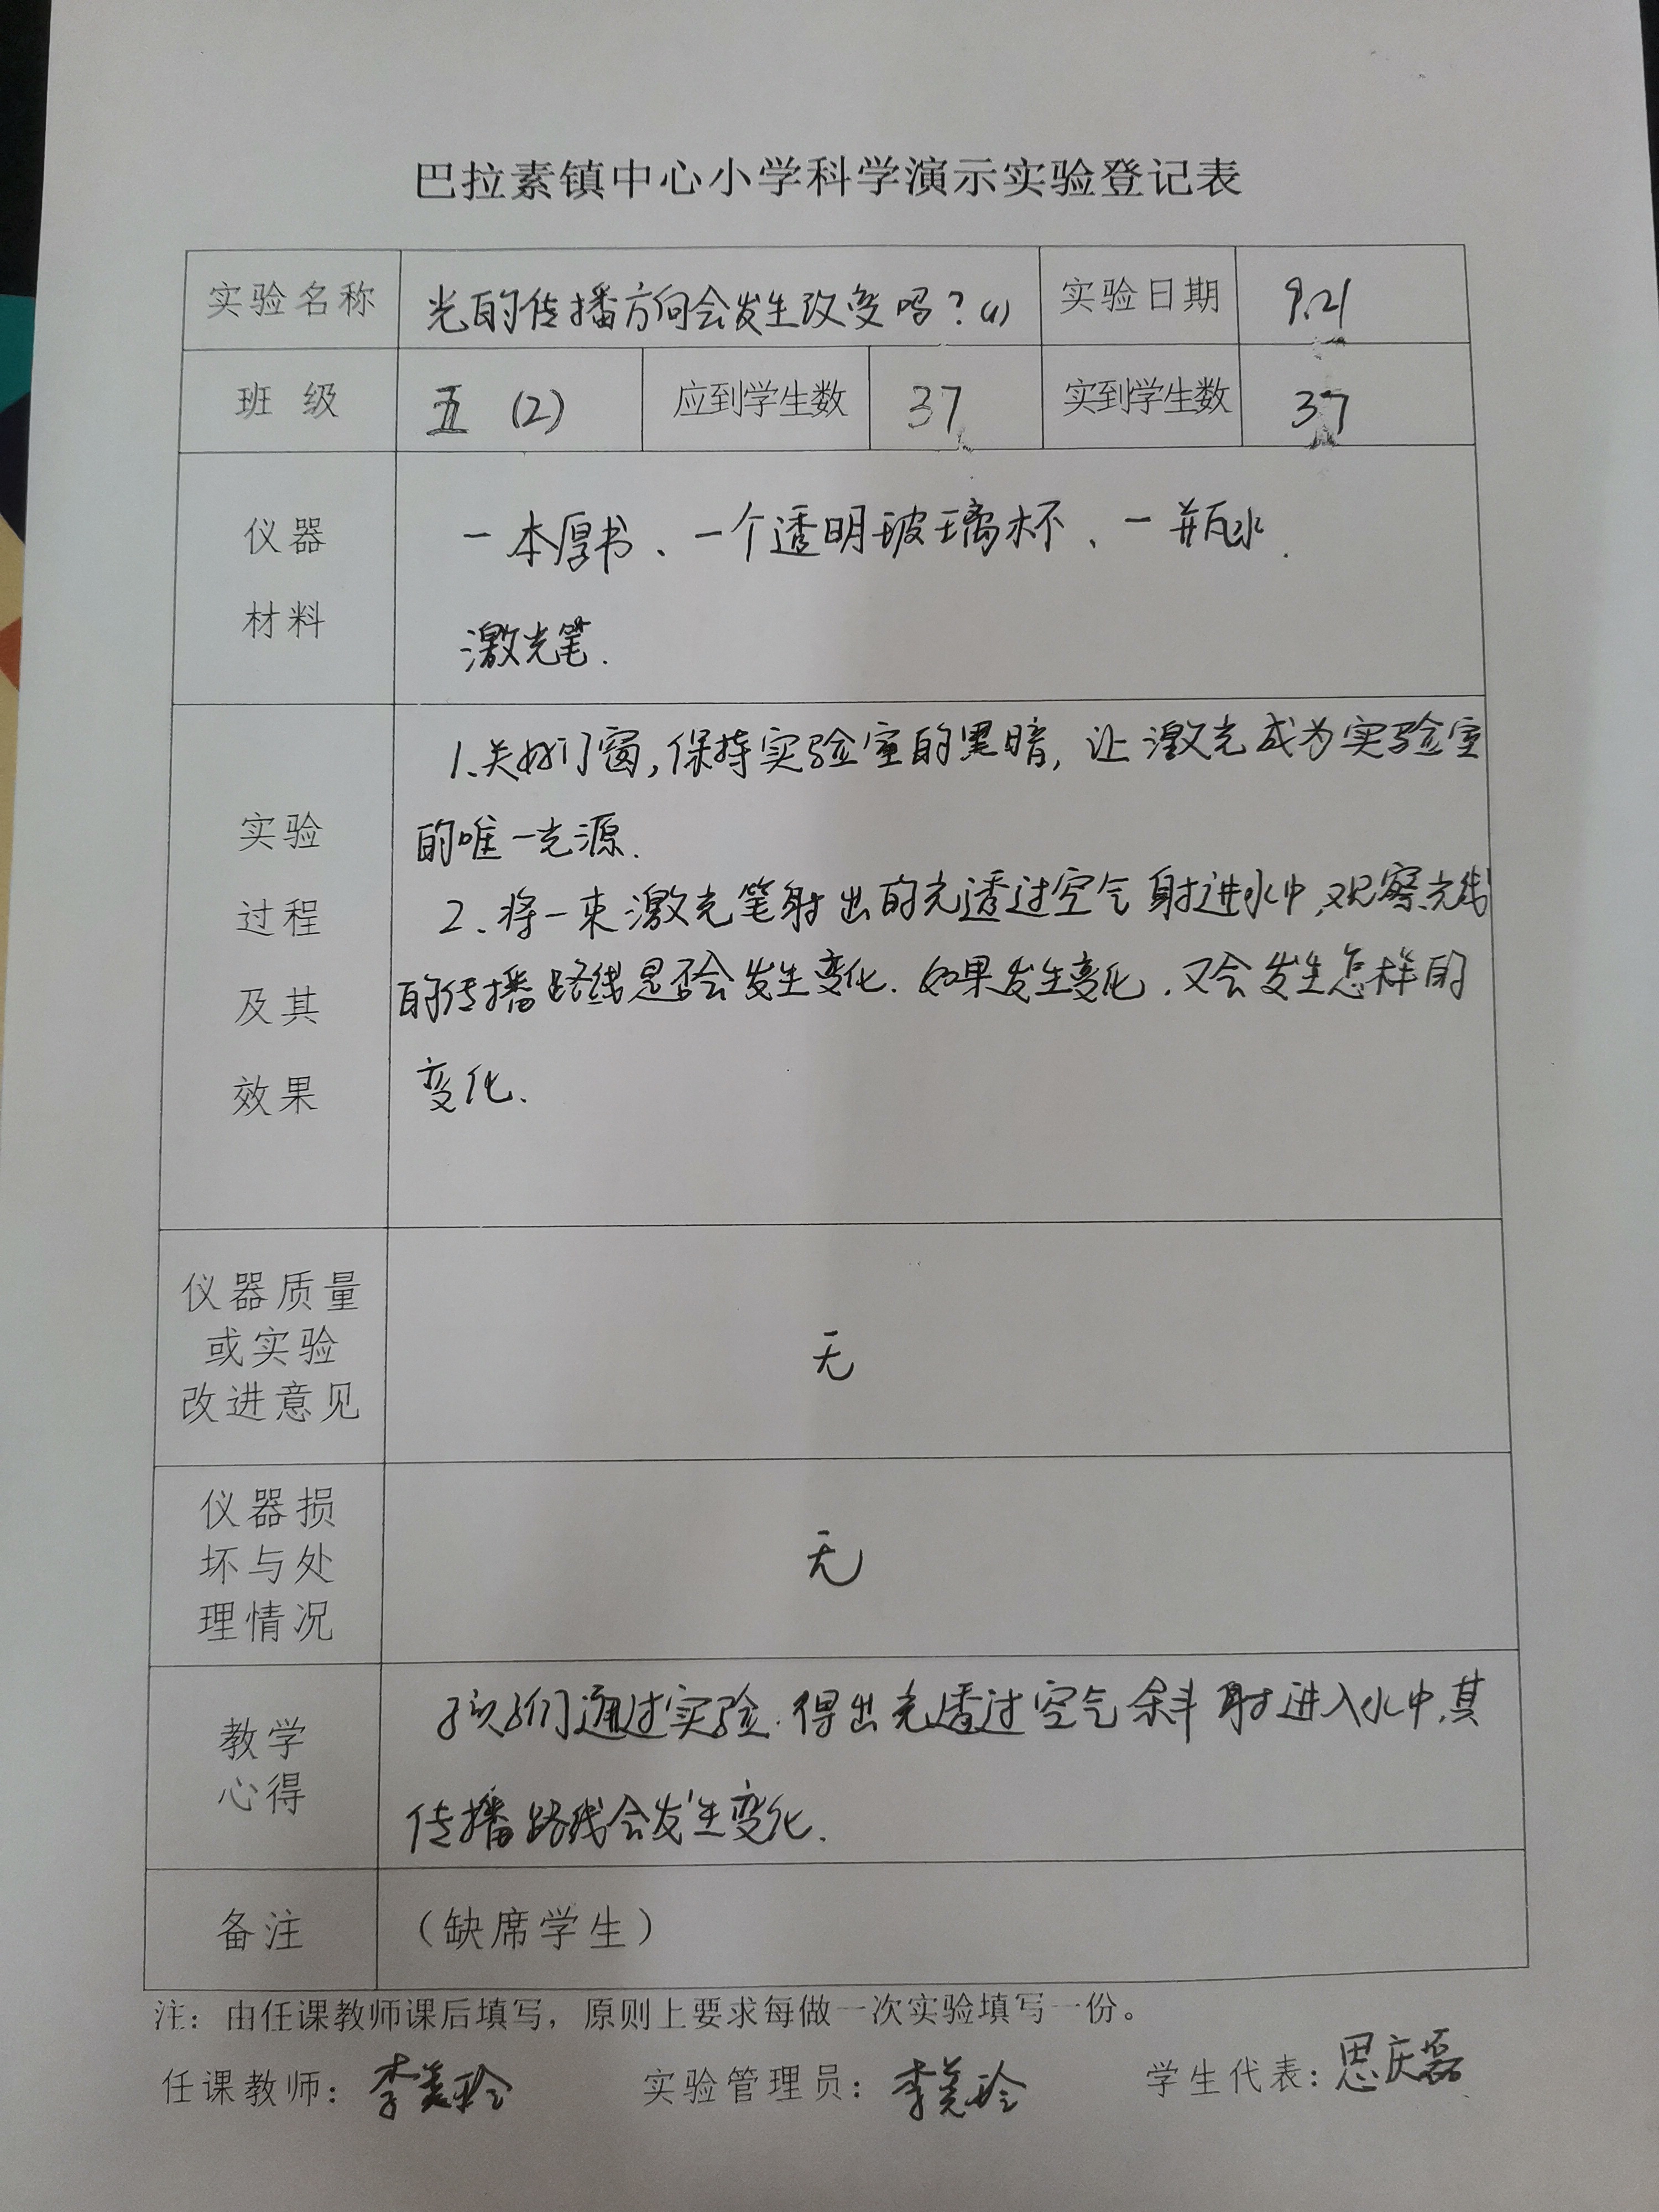 巴拉素镇中心小学科学演示实验登记表
实验名称 光的传播方向会发生改变吗？(1) 实验日期 9.21
班 级 五 (2) 应到学生数 37 实到学生数 37
仪器 一本厚书、一个透明玻璃杯、一瓶水.
材料 激光笔.
1.关好门窗,保持实验室的黑暗,让激光成为实验室
实验 的唯一光源.
过程 2.将一束激光笔射出的光透过空气射进水中,观察光线
及其 的传播路线是否会发生变化.如果发生变化,又会发生怎样的
效果 变化.
仪器质量
或实验 无
改进意见
仪器损
坏与处 无
理情况
孩子们通过实验.得出光透过空气斜射进入水中,其
教学
心得 传播路线会发生变化.
备注 （缺席学生）
注：由任课教师课后填写，原则上要求每做一次实验填写一份。
任课教师：李美玲 实验管理员：李美玲 学生代表：思庆磊